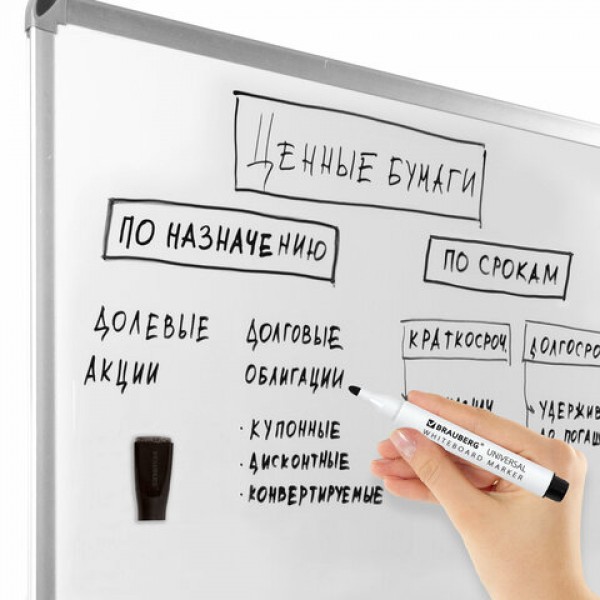 ЦЕННЫЕ БУМАГИ
ПО НАЗНАЧЕНИЮ
ПО СРОКАМ
ДОЛЕВЫЕ
АКЦИИ
ДОЛГОВЫЕ
ОБЛИГАЦИИ
· КУПОННЫЕ
· ДИСКОНТНЫЕ
· КОНВЕРТИРУЕМЫЕ
КРАТКОСРОЧ.
ДОЛГОСРО
УДЕРЖИВ
ДО ПОГАШ
BRAUBERG® UNIVERSAL
WHITEBOARD MARKER